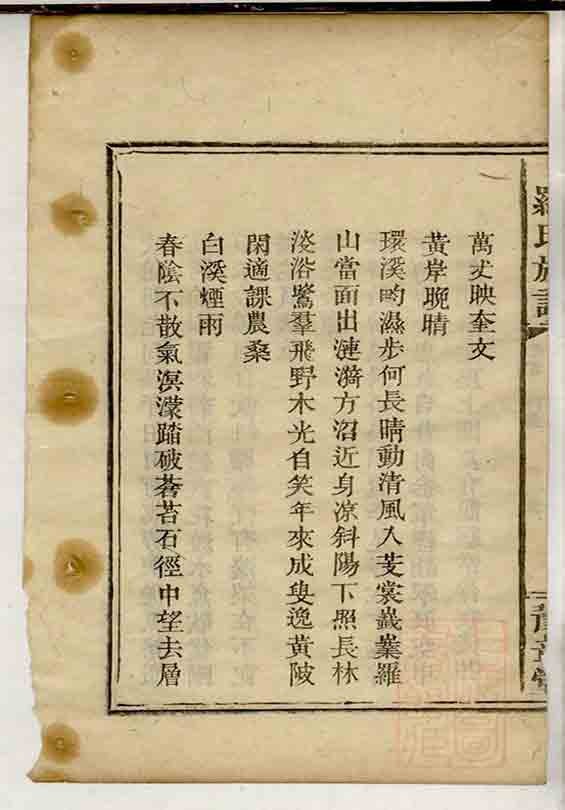 羅氏族譜
萬丈映奎文
黃岸晚晴
環溪畇濕步何長晴動清風入芰裳巀嶪羅
山當面出漣漪方沼近身凉斜陽下照長林
淡浴鷺羣飛野木光自笑年來成叟逸黃陂
閑適課農桑
白溪煙雨
春陰不散氣溟濛踏破蒼苔石徑中望去層